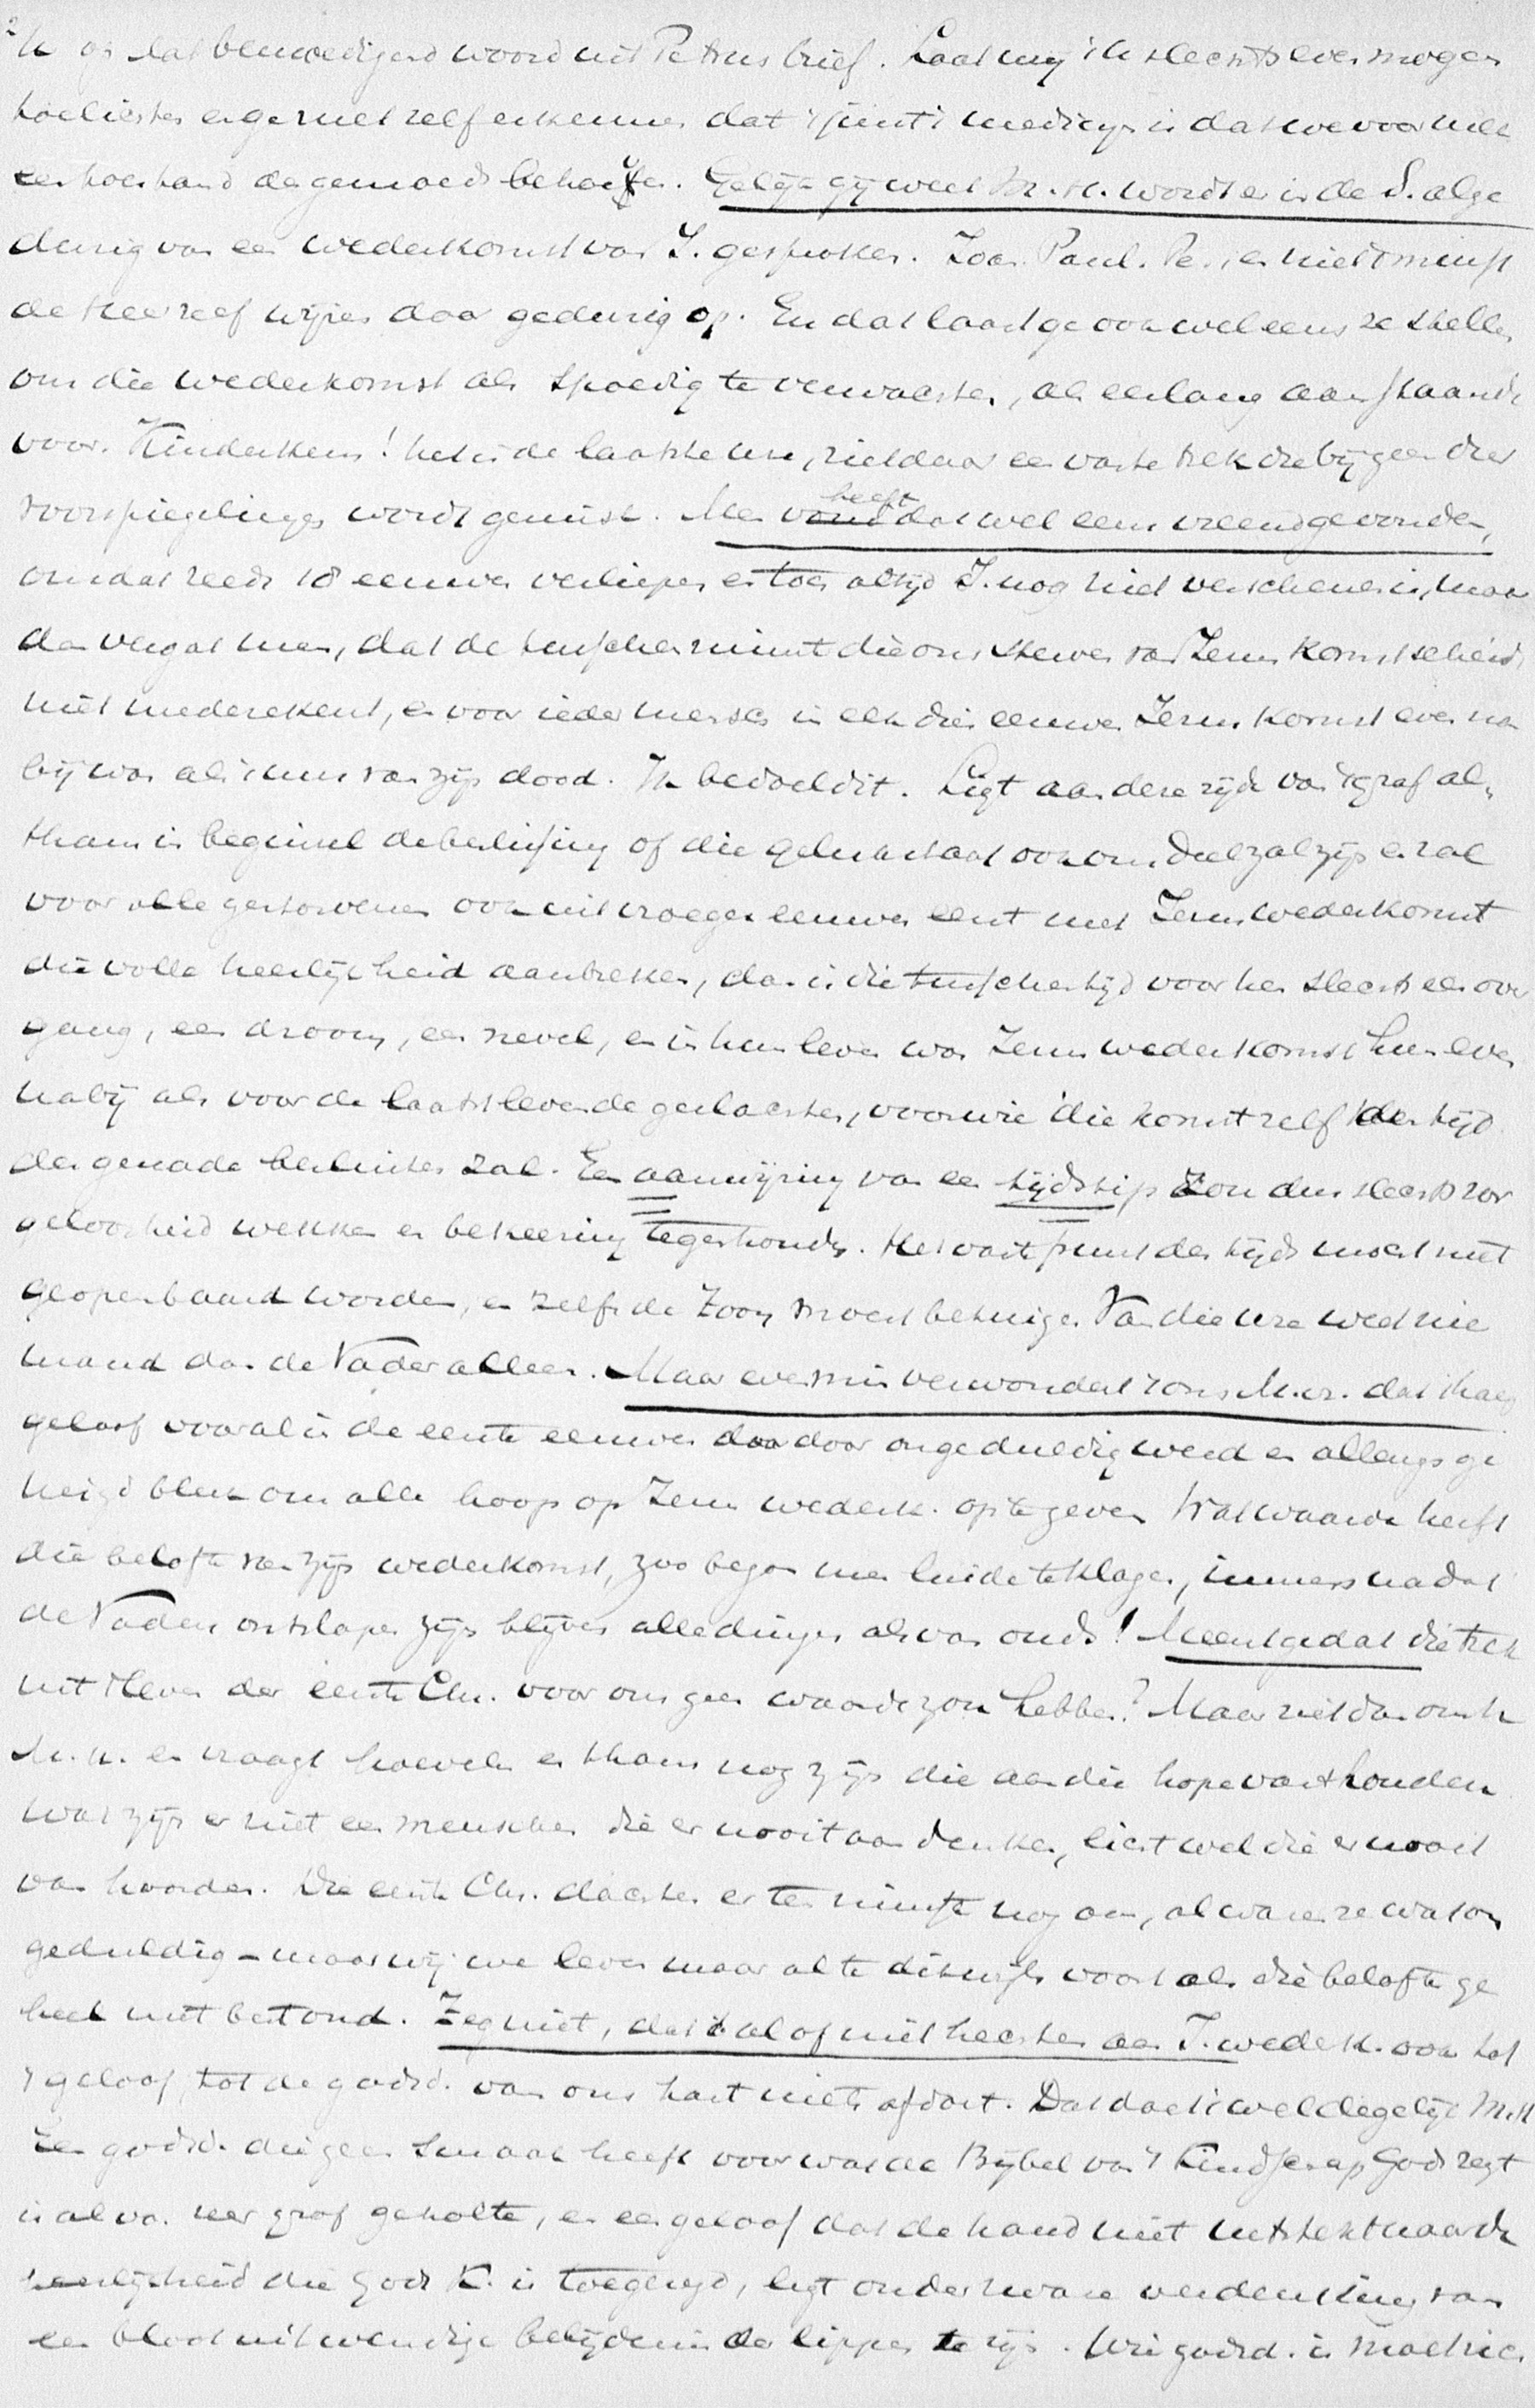 'k op dat bemoedigend woord uit Petrus brief. Laat mij 'k slechts even mogen
toelichten en ge zult zelf erkennen dat 't juist 't medicijn is dat we voor
der gemoed behoefte. Gelijk gij weet M.H. wordt er in de S. alge
durig van een wederkomst van J. gesproken. Zoo Paul. Pe., en niet 't minst
de Heer zelf wijzen daar gedurig op. En dat laat ge ook wel eens te stellen
om die wederkomst als spoedig te verwachten, als eerlang aanstaande
voor. Kinderkens! het is de laatste ure, ziet daar een vaste trek die bij geen dier
voorspiegelingen wordt gemist. Men heeft dat wel eens vreemd gevonden,
omdat reeds 18 eeuwen verliepen en toch altijd J. nog niet verschenen is, maar
dan vergat men, dat de tusschenruimte die ons sterven van Jezus komst scheidt
niet mederekent, en voor ieder mensch in elk dier eeuwen Jezus komst even na
bij was als 't uur van zijn dood. Ik bedoel dit. Ligt aan deze zijde van 't graf al„
thans in beginsel de beslissing of die gelukstaat ook ons deel zal zijn en zal
voor alle gestorvenen ook uit vroeger eeuwen eerst met Jezus wederkomst
die volle heerlijkheid aanbreken, dan is die tusschentijd voor hen slechts een over
gang, een droom, een nevel, en in hun leven was Jezus wederkomst hun even
nabij als voor de laatst levende geslachten, voor wie die komst zelf den tijd
der genade besluiten zal. Een aanwijzing van een tijdstip zou dus slechts zor
geloosheid wekken en bekeering tegenhouden. Het vast punt des tijds moest niet
geopenbaard worden, en zelfs de Zoon moest betuigen Van die ure weet nie
mand dan de Vader alleen. Maar evenmin verwondert 't ons M.H. dat 't haes
geloof vooral in de eerste eeuwen daardoor ongeduldig werd en allengs ge
neigd bleek om alle hoop op Jezus wederk. op te geven Wat waarde heeft
die belofte van zijn wederkomst, zoo begon men luide te klagen, immers nadat
de Vaders ontslapen zijn blijven alle dingen als van ouds! Meent ge dat die trek
uit 't leven der eerste Chr. voor ons geen waarde zou hebben? Maar ziet dan om u
M.H. en vraagt hoevelen er thans nog zijn die aan die hope vasthouden
Wat zijn er niet een menschen die er nooit aan denken, licht wel die er nooit
van hoorden. Die eerste Chr. dachten er ten minste nog aan, al waren ze wat on
geduldig – maar wij we leven maar al te dikwijls voort als die belofte ge
heel niet bestond. Zeg niet, dat 't al of niet hechten aan J. wederk. ook tot
't geloof, tot de godsd. van ons hart niets afdoet. Dat doet 't wel degelijk M.H
Een godsd. die geen smaak heeft voor wat de Bijbel van 't Kindschap Gods zegt
is al van zeer grof gehalte, en een geloof dat de hand niet uitstrekt naar de
heerlijkheid die Gods K. is toegezegd, ligt onder zware verdenking van
een bloot uitwendige belijdenis der lippen te zijn. Wie godsd. is moet niet